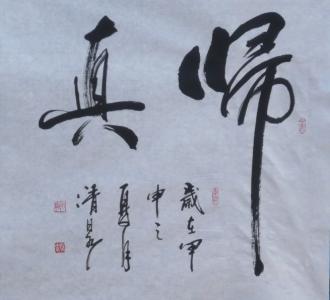 歸真
歲在甲
申之
夏月